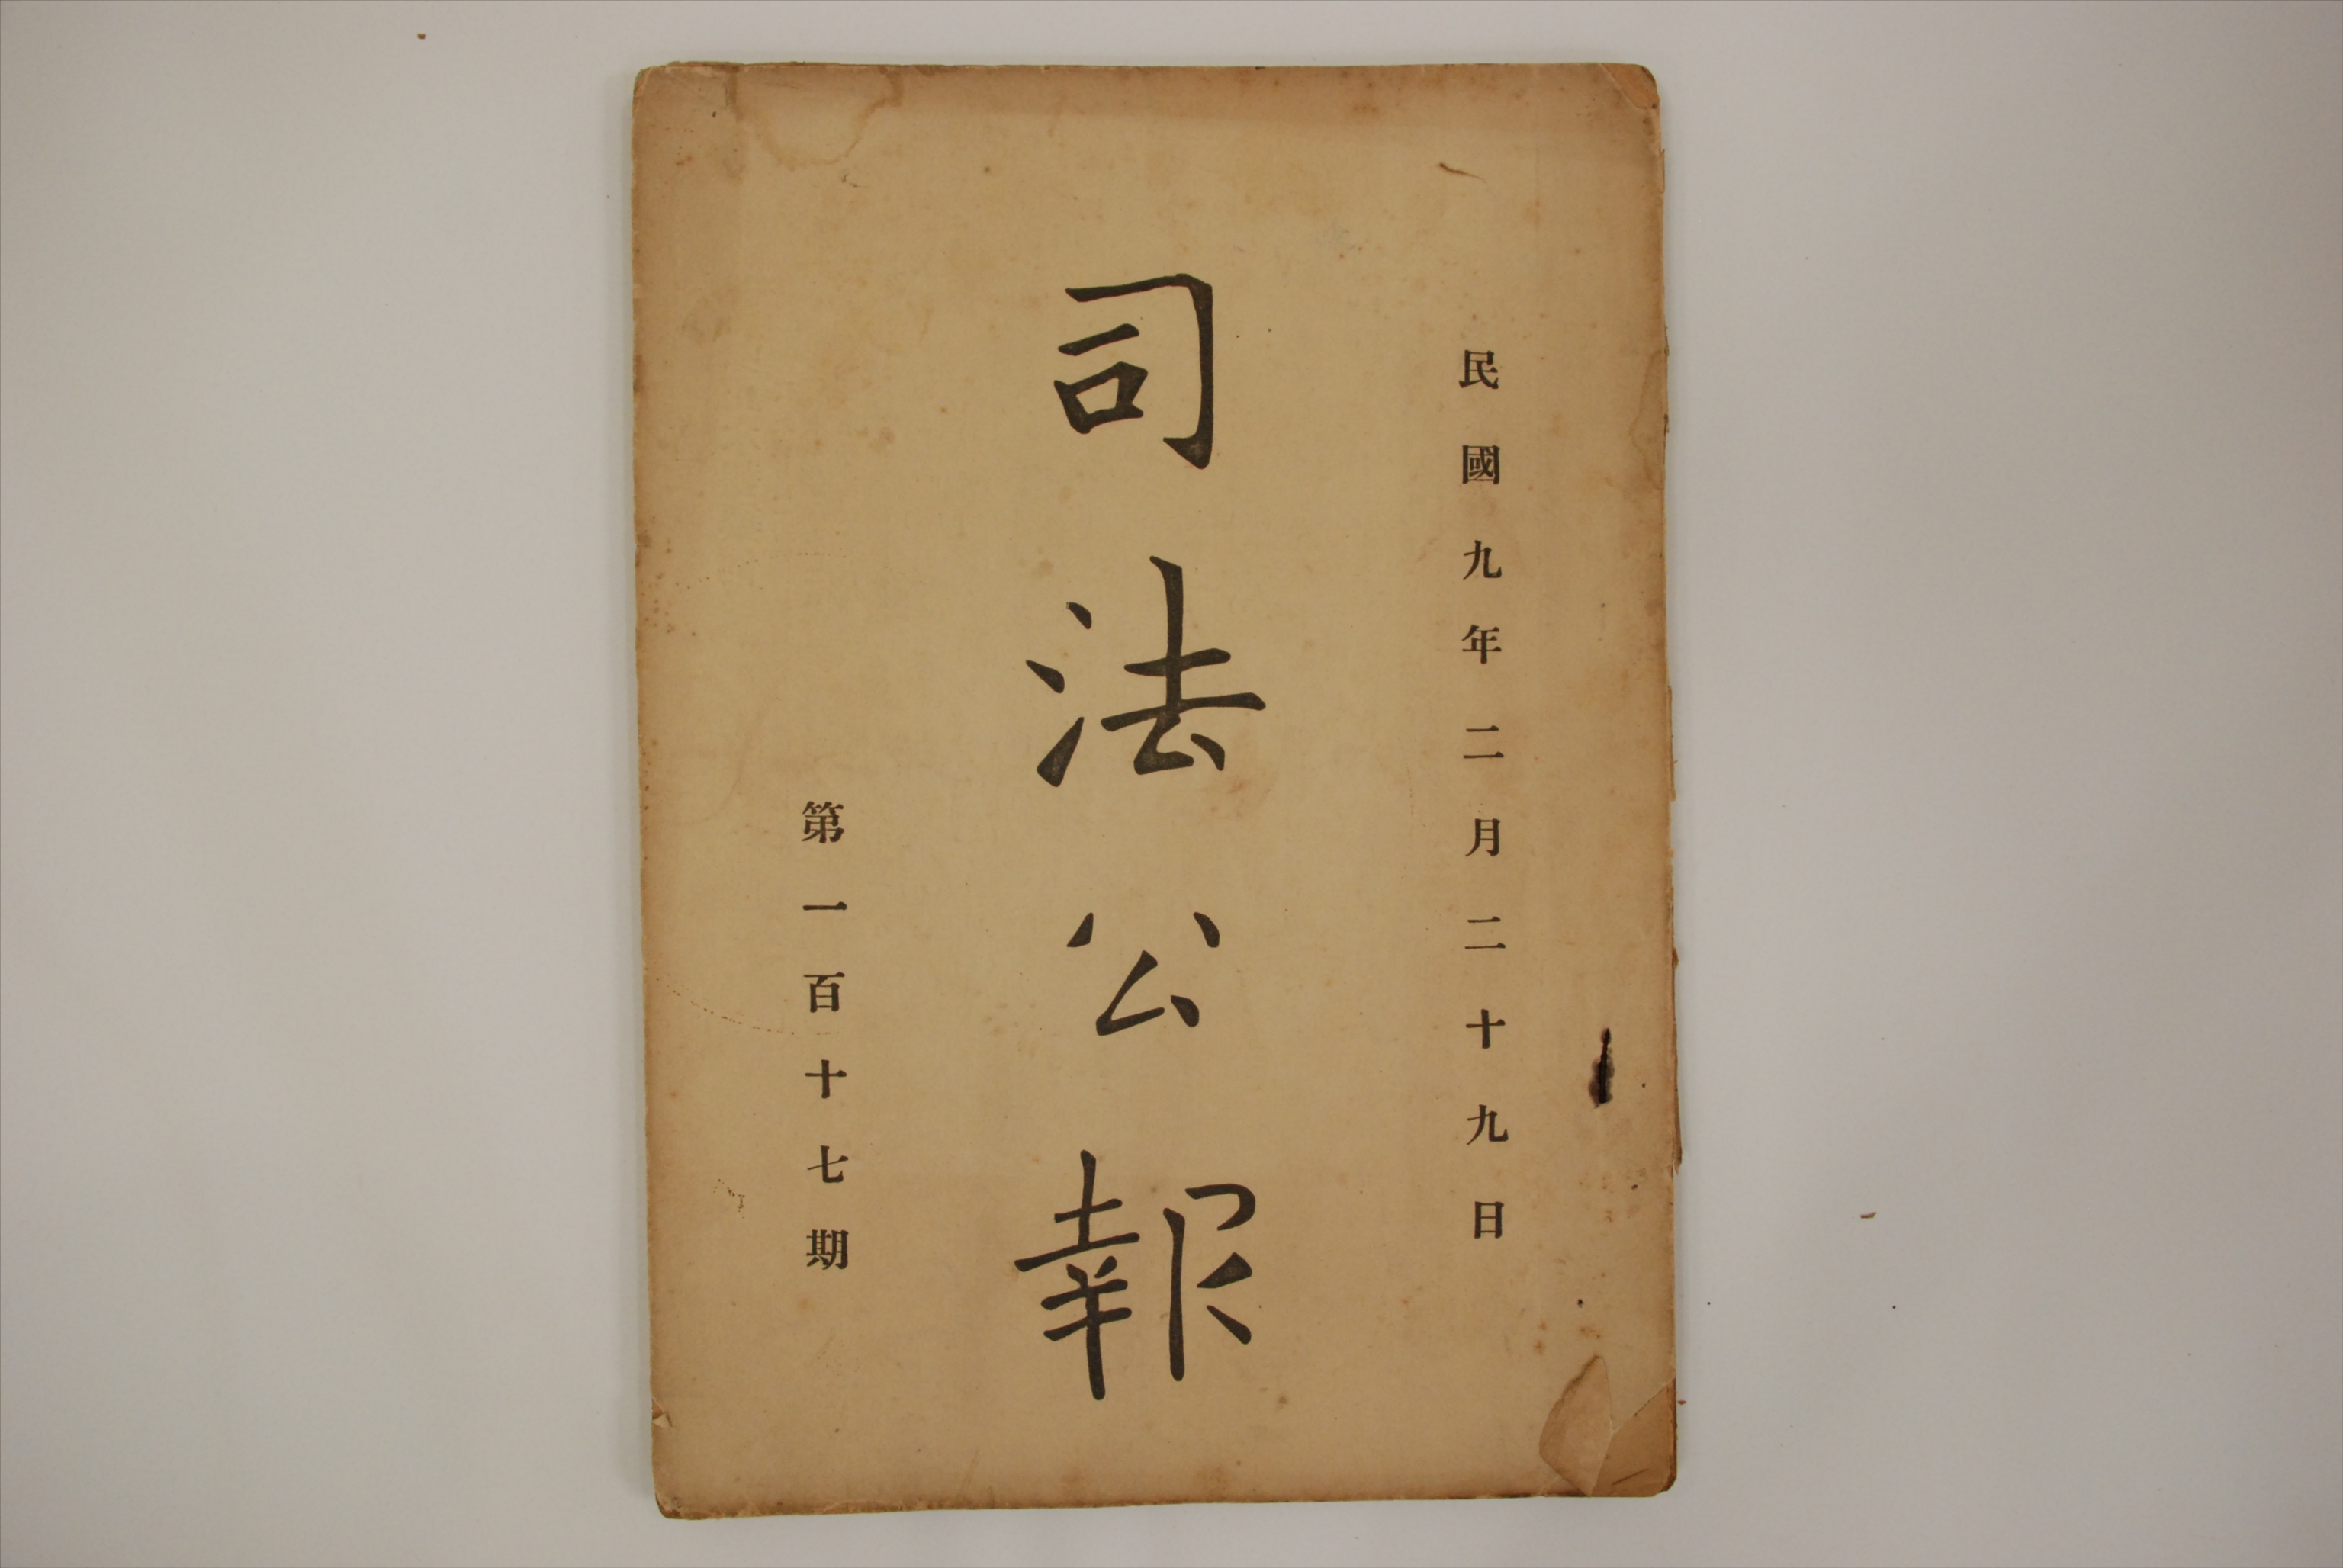 民國九年二月二十九日
司法公報
第一百十七期